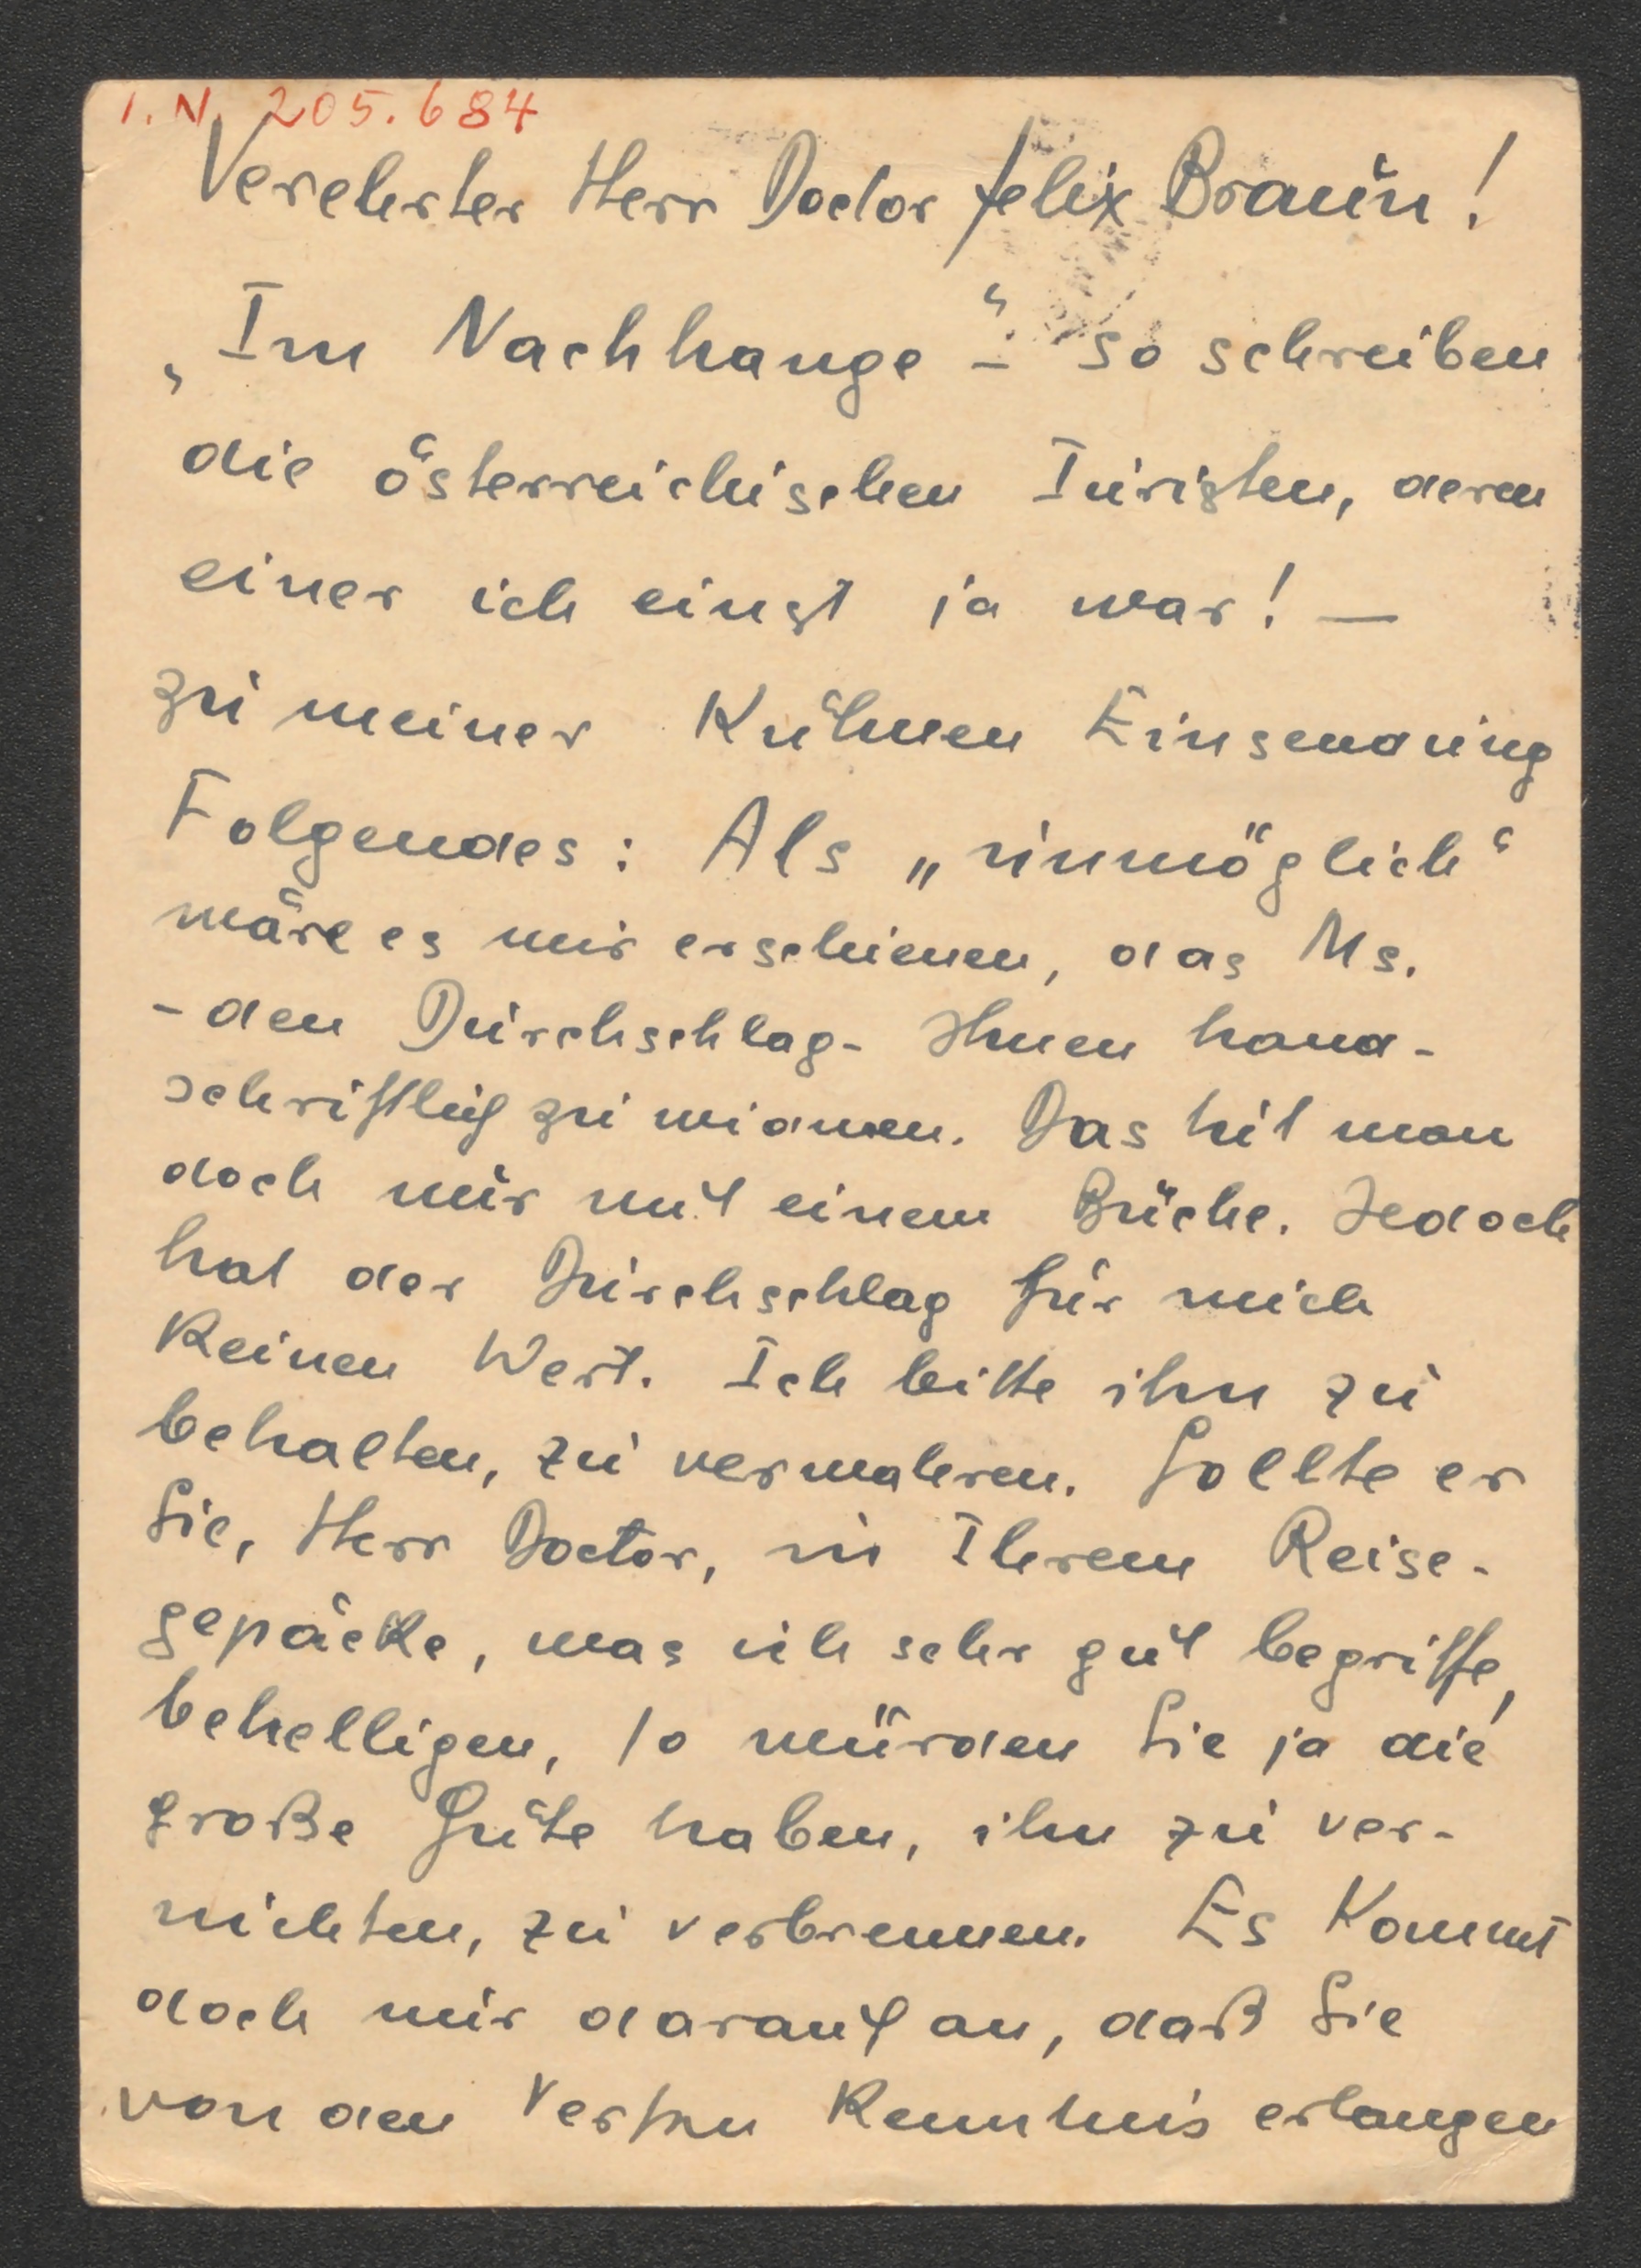 I.N. 205.684
Verehrter Herr Doctor Felix Braun!
„Im Nachhange“ – so schreiben
die österreichischen Juristen, deren
einer ich einst ja war! —
zu meiner kühnen Einsendung
Folgendes: Als „unmöglich“
wäre es mir erschienen, das Ms.
- den Durchschlag - Ihnen hand-
schriftlich zu widmen. Das tut man
doch nur mit einem Buche. Jedoch
hat der Durchschlag für mich
keinen Wert. Ich bitte ihn zu
behalten, zu verwahren. Sollte er
Sie, Herr Doctor, in Ihrem Reise-
gepäcke, was ich sehr gut begriffe,
behelligen, so würden Sie ja die
große Güte haben, ihn zu ver-
nichten, zu verbrennen. Es kommt
doch nur darauf an, daß Sie
von den Versen Kenntnis erlangen